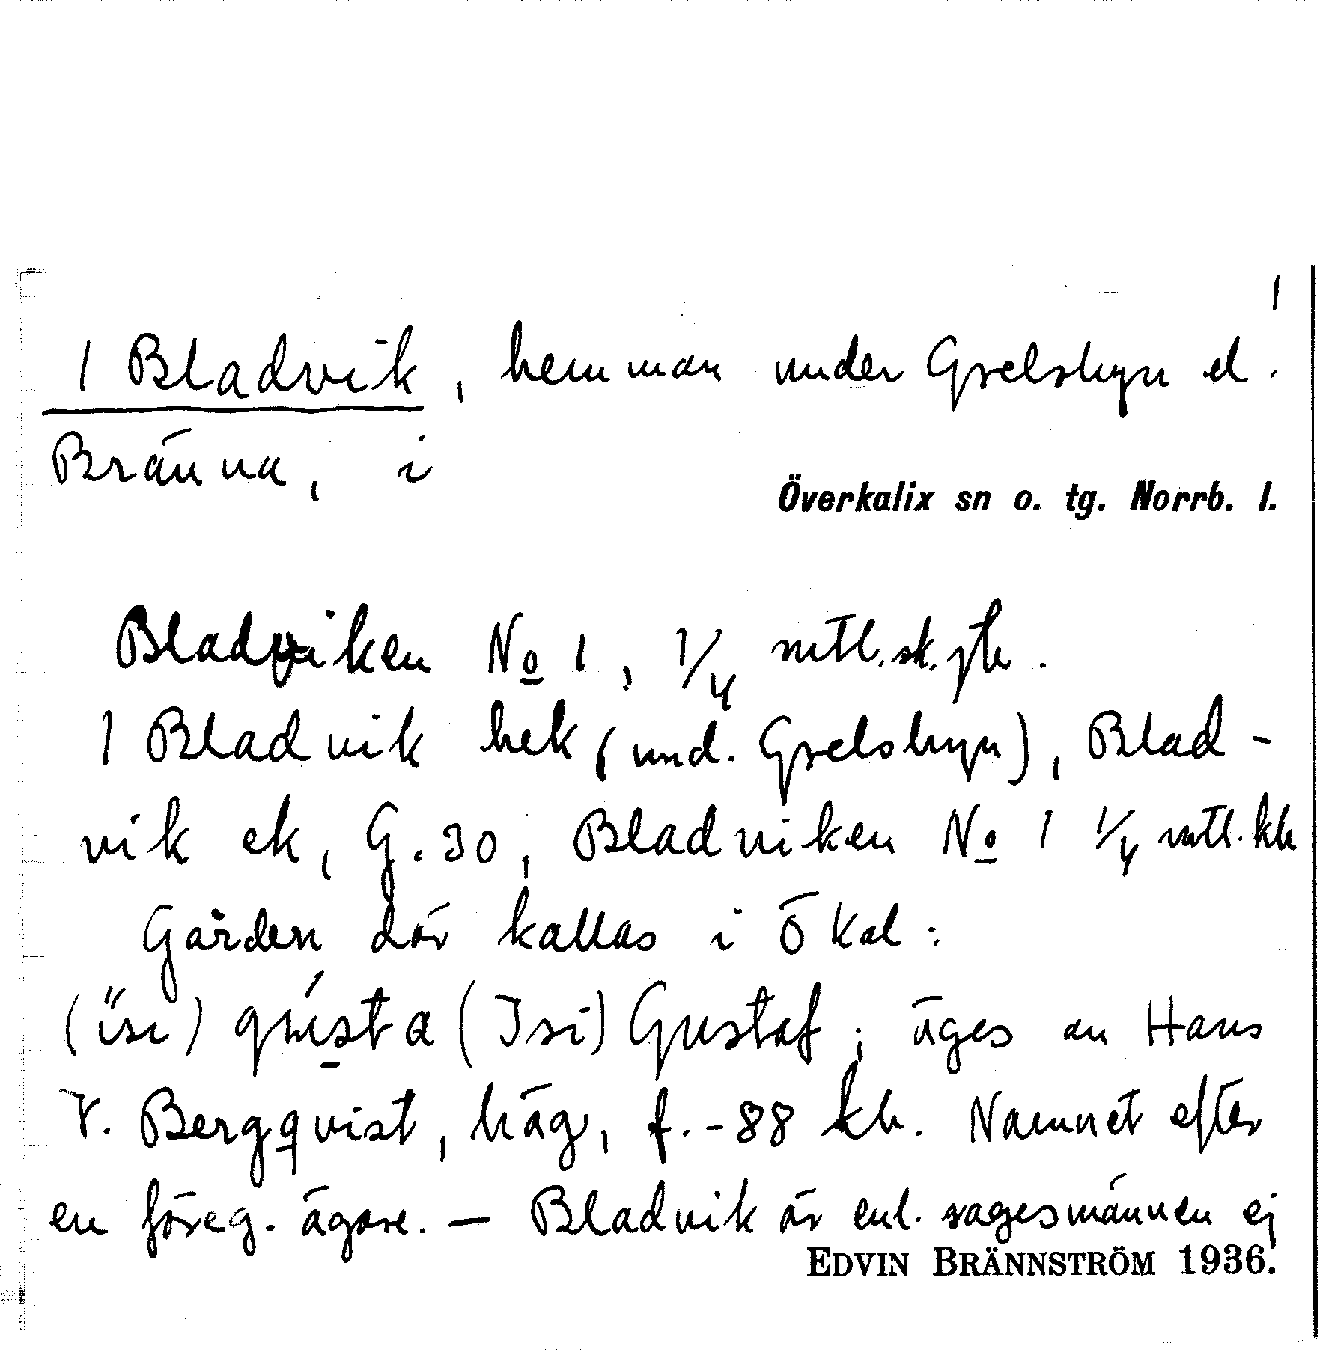 1
1 Bladvik, hemman under Grelsbyn el.
Bränna, i
Överkalix sn o. tg. Norrb. l.
Bladviken No 1, 1/4 mtl. sk. jb.
1 Bladvik hek (und. Grelsbyn), Blad-
vik ek, G. 30, Bladviken No 1 1/4 mtl. kb
Gården där kallas i Ö Kal:
(isi) gústa (Isi) Gustaf; äges av Hans
V. Bergqvist, häg, f. -88 kb. Namnet efter
en föreg. ägare. — Bladvik är enl. sagesmännen ej
EDVIN BRÄNNSTRÖM 1936.